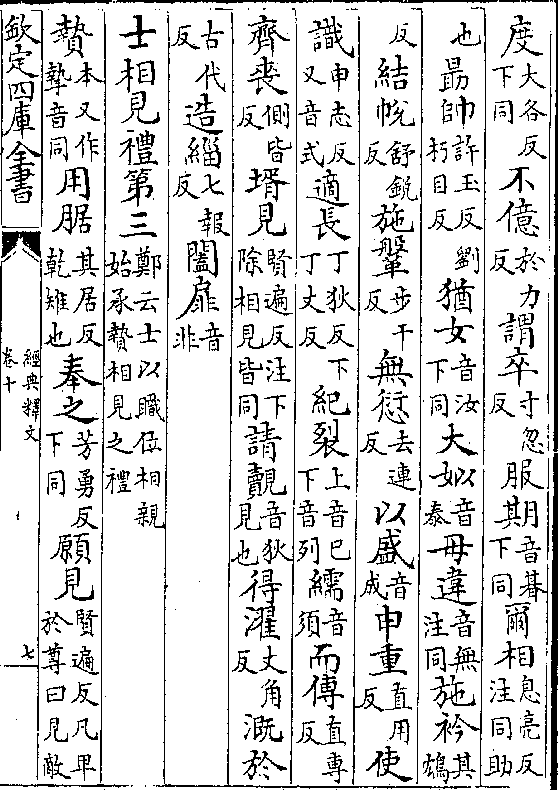 度大各反下同不億於力反謂卒寸忽反服期音朞下同爾相息亮反注同助
也勗帥許玉反劉朽目反猶女音汝下同大姒音泰毋違音無注同施衿其鴆
反結帨舒銳反施鞶步干反無愆去連反以盛音成申重直用反使
識申志反又音式適長丁狄反下丁丈反紀裂上音巳下音列繻音須而傳直專反
齊喪側皆反壻見賢遍反注下除相見皆同請覿音狄見也得濯丈角反溉於
古代反造緇七報反闔扉音非
士相見禮第三鄭云士以職位相親始承贄相見之禮
贄本又作摯音同用腒其居反乾雉也奉之芳勇反下同願見賢遍反凡卑於尊曰見敵
欽定四庫全書
經典釋文
卷十
七